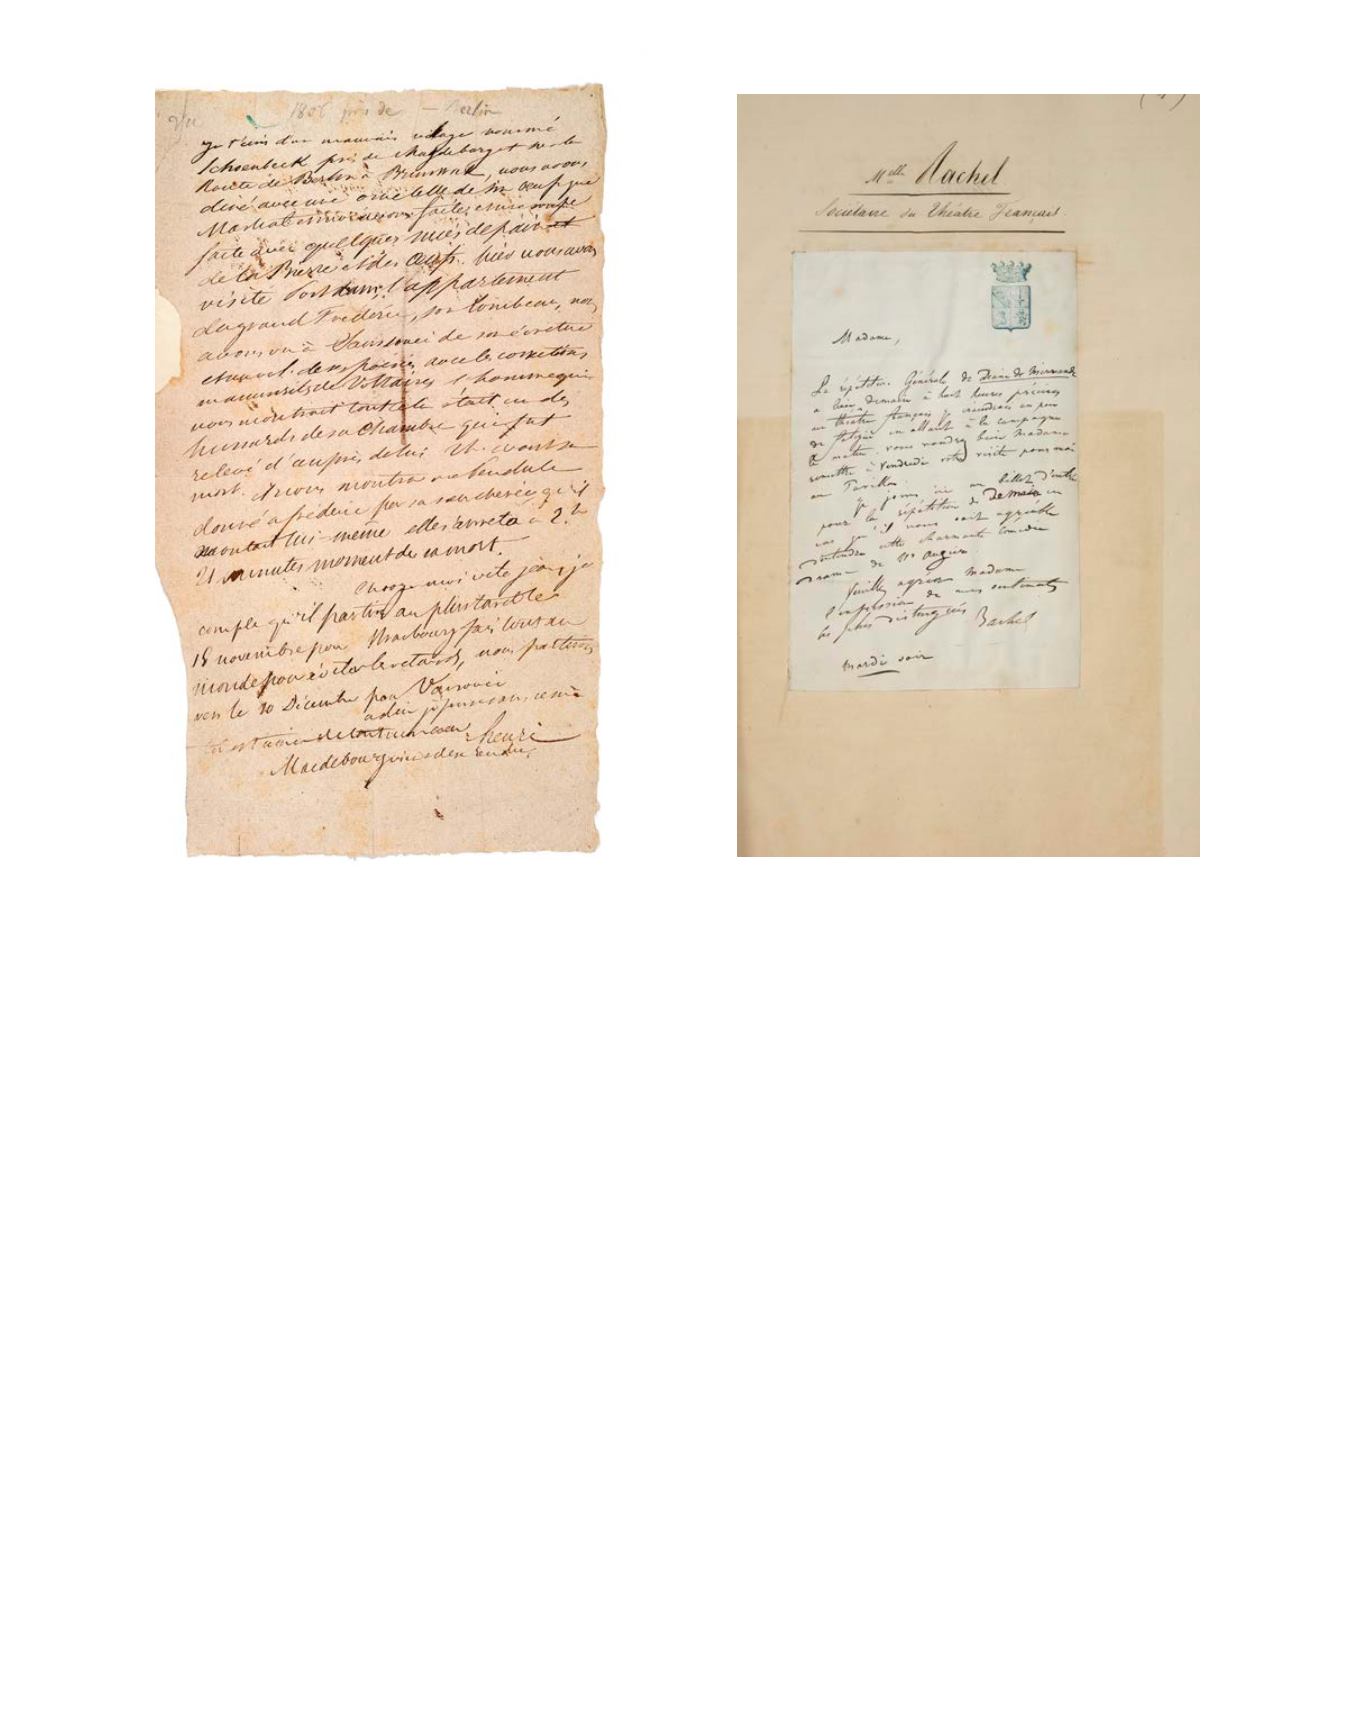 1806 près de Berlin
je t'écris d'un mauvais village nommé
Schoenbeck près de Magdebourg et sur la
Route de Berlin à Brunswik, nous avons
diné avec une omelette de six oeufs que
Martial et moi avons faite, et une soupe
faite avec quelques mies de pain et
de la Bierre et des oeufs. hier nous avons
visité Postdam, l'appartement
du grand Frederic, son tombeau, nous
avons vu à Sanssouci de son écriture
de ses poésies avec les corrections
manuscrites de Voltaire, l'homme qui
nous montrait tout cela était un des
hussards de sa chambre qui fut
relevé d'auprès de lui 2h. avant sa
mort. il nous montra une Pendule
donné a frédéric par sa soeur cherée qu'il
montait lui-même elle s'arreta à 2.h
21 minutes moment de sa mort.
envoye moi vite jean, je
compte qu'il partira au plus tard le
15 novembre pour Strasbourg fais tout au
monde pour éviter le retard, nous partirons
vers le 10 Décembre pour Varsovie
adieu
de tout mon coeur henri
(4)
Melle Rachel
Sociétaire du Théâtre Français.
Madame,
La répétition Générale de Diane de Mirmande
a lieu demain à huit heures précises
au théâtre français je craindrais un peu
de fatigue en allant à la campagne
le matin. vous voudrez bien Madame
remettre à Vendredi votre visite pour moi
au Pavillon.
je joins ici un billet d'entrée
pour la répétition de Demain en
cas qu'il vous soit agréable
d'entendre cette charmante comédie
drame de Mr Augier.
Veuillez agréer Madame
l'expression de mes sentiments
les plus distingués Rachel
mardi soir